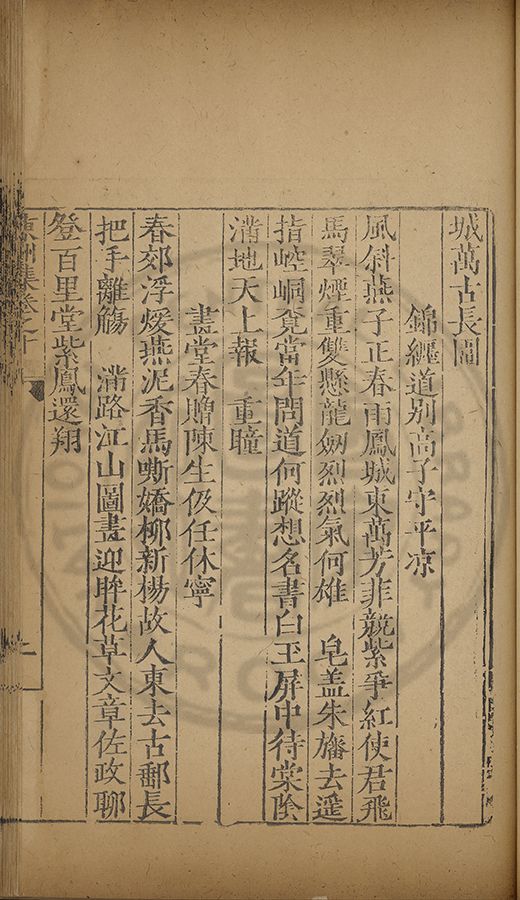 城萬古長圖
錦纏道別高子守平凉
風斜燕子正春雨鳳城東萬芳菲競紫爭紅使君飛
馬翠煙重雙懸龍劒烈烈氣何雄　皂盖朱旛去遥
指崆峒 當年問道何蹤想名書白玉屏中待棠陰
滿地天上報　重瞳
畫堂春贈陳生伋任休寧
春郊浮煖燕泥香馬嘶嬌柳新楊故人東去古鄱長
把手離觴　滿路江山圖畫迎眸花草文章佐政聊
登百里堂紫鳳還翔
集卷之十